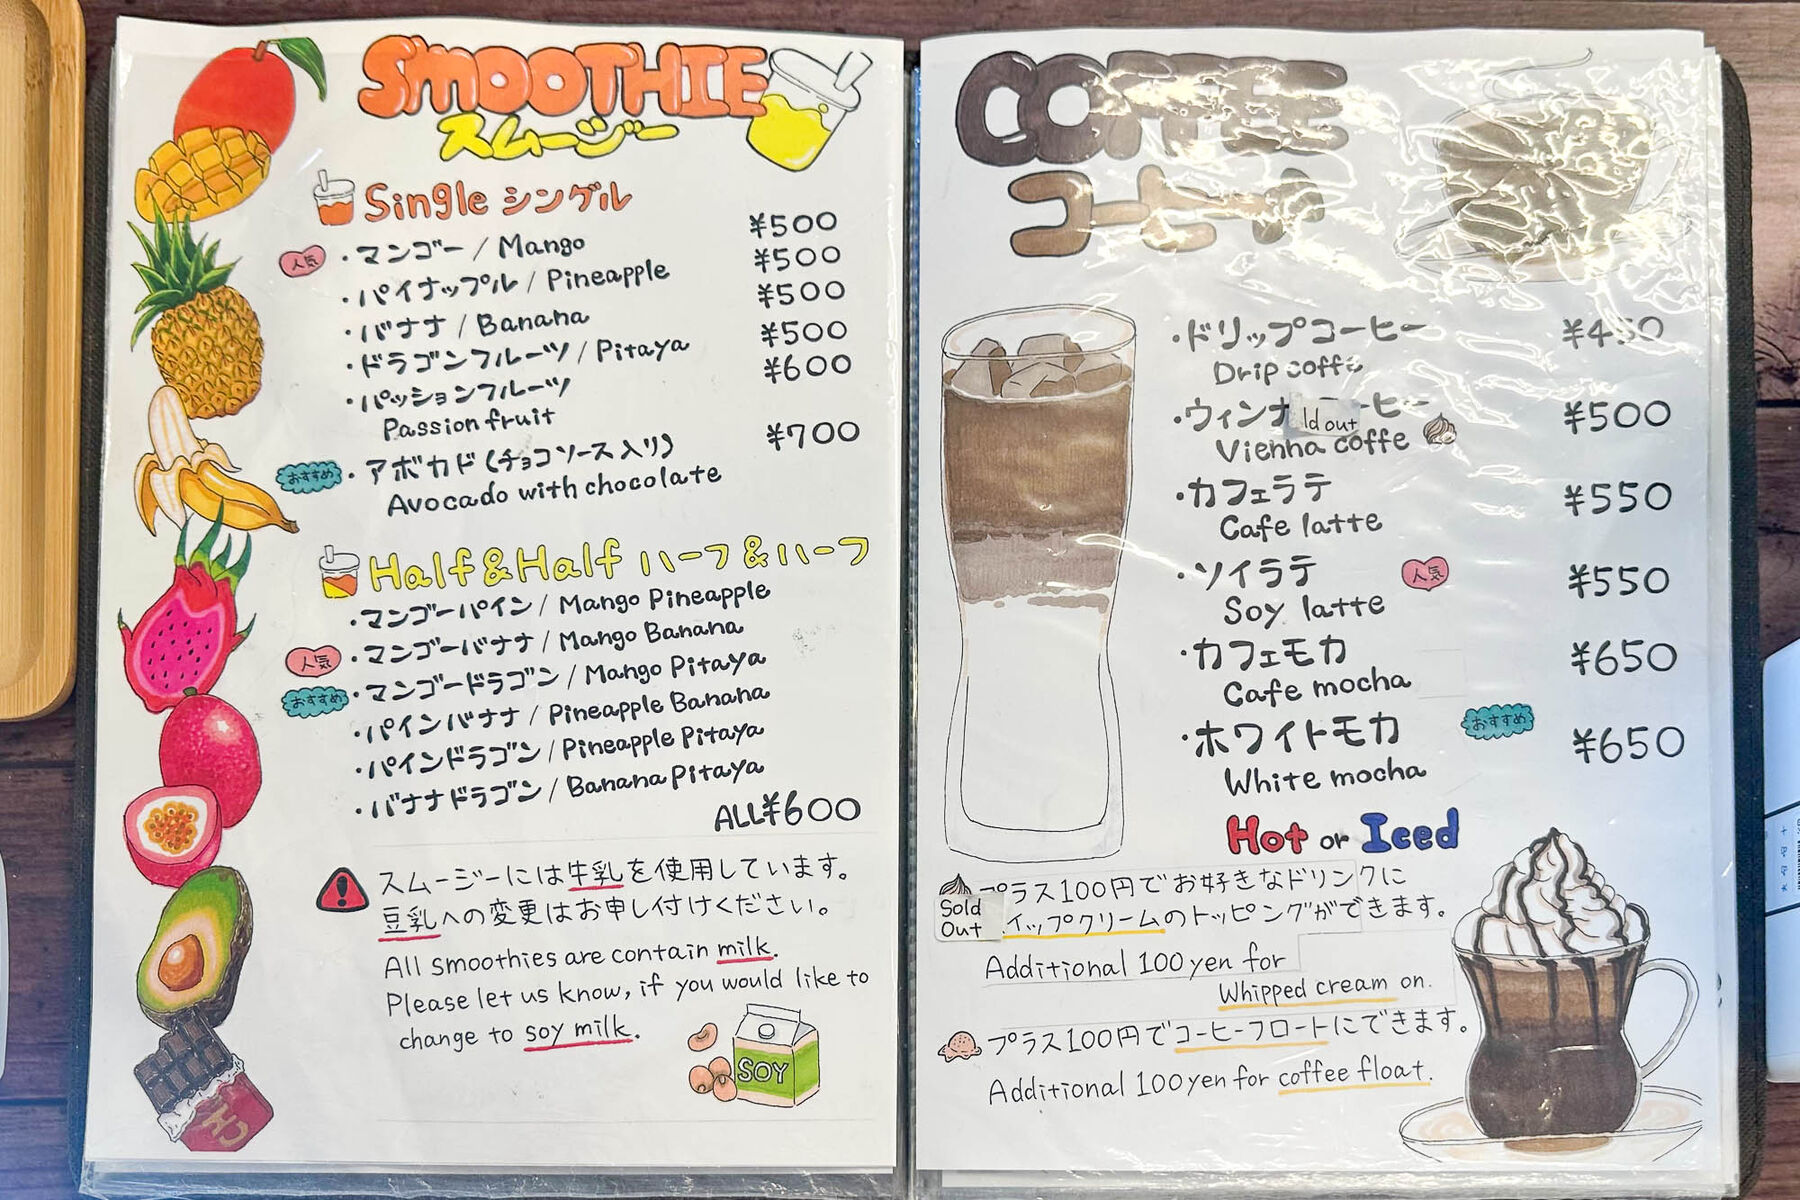 SMOOTHIE
スムージー
Single シングル
人気 ・マンゴー / Mango ¥500
・パイナップル / Pineapple ¥500
・バナナ / Banana ¥500
・ドラゴンフルーツ / Pitaya ¥500
・パッションフルーツ ¥600
Passion fruit
おすすめ ・アボカド (チョコソース入り) ¥700
Avocado with chocolate
Half&Half ハーフ&ハーフ
・マンゴーパイン / Mango Pineapple
人気 ・マンゴーバナナ / Mango Banana
おすすめ ・マンゴードラゴン / Mango Pitaya
・パインバナナ / Pineapple Banana
・パインドラゴン / Pineapple Pitaya
・バナナドラゴン / Banana Pitaya
ALL¥600
スムージーには牛乳を使用しています。
豆乳への変更はお申し付けください。
All smoothies are contain milk.
Please let us know, if you would like to
change to soy milk.
SOY
CH
COFFEE
コーヒー
・ドリップコーヒー ¥450
Drip coffe
・ウィンナーコーヒー ¥500
ld out
Vienna coffe
・カフェラテ ¥550
Cafe latte
・ソイラテ 人気 ¥550
Soy latte
・カフェモカ ¥650
Cafe mocha
・ホワイトモカ おすすめ ¥650
White mocha
Hot or Iced
プラス100円でお好きなドリンクに
Sold
Out
イップクリームのトッピングができます。
Additional 100 yen for
Whipped cream on.
プラス100円でコーヒーフロートにできます。
Additional 100 yen for coffee float.